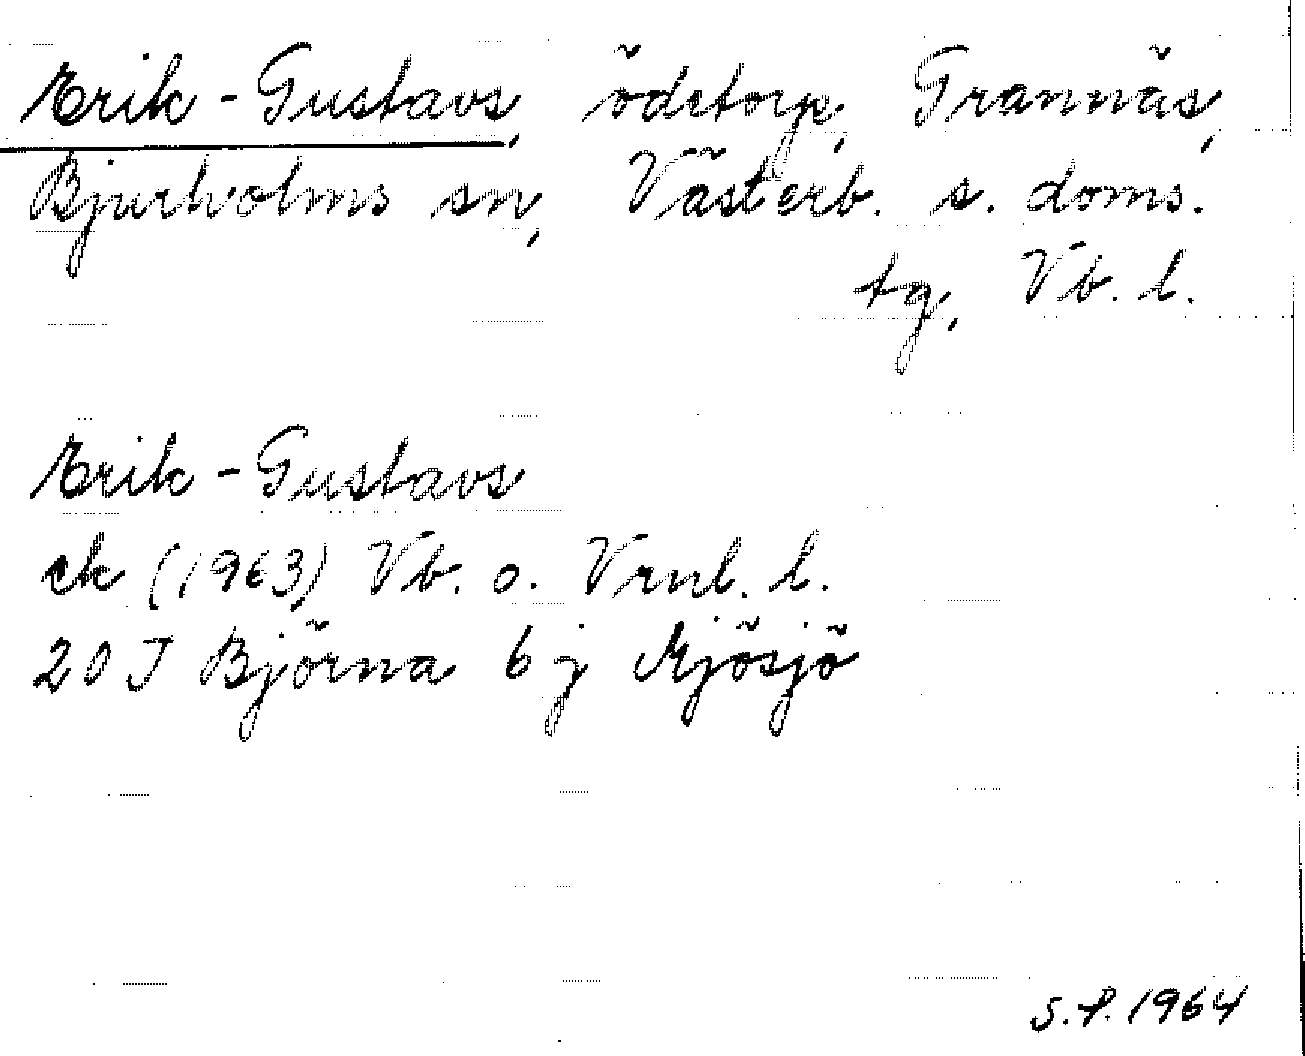 Erik-Gustavs, ödetorp, Grannäs,
Bjurholms sn, Västerb. s. doms.
tg, Vb. l.
Erik-Gustavs
ek (1963) Vb. o. Vrnl. l.
20 J Björna 6 j Mjösjö
S.P. 1964